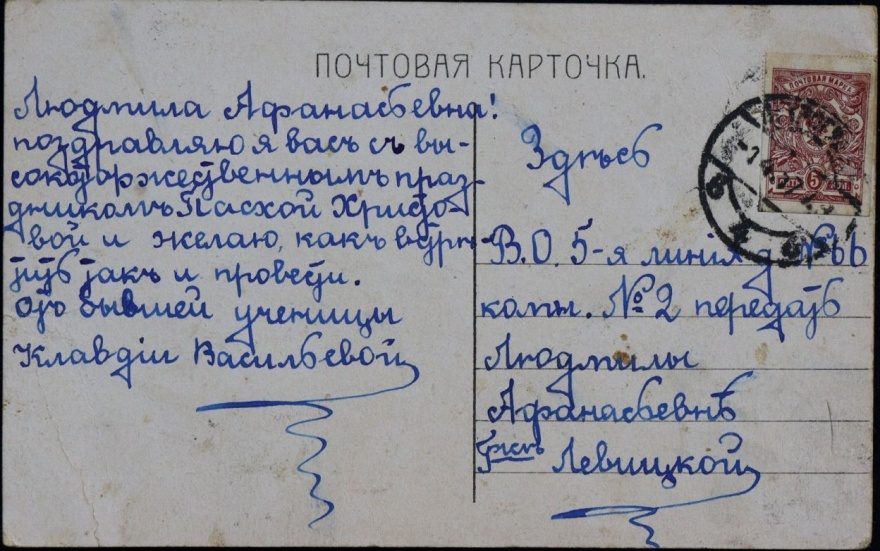 ПОЧТОВАЯ КАРТОЧКА.
Людмила Афанасьевна!
поздравляю я васъ съ вы-
сокоторжественнымъ праз-
дникомъ Пасхой Христо-
вой и желаю, какъ встрѣ-
тить такъ и провести.
отъ бывшей ученицы
Клавдіи Васильевой
ПОЧТОВАЯ МАРКА
6 КОП.
Здѣсь
В.О. 5-я линія д №66
комн. №2 передать
Людмилы
Афанасьевнѣ
Левицкой